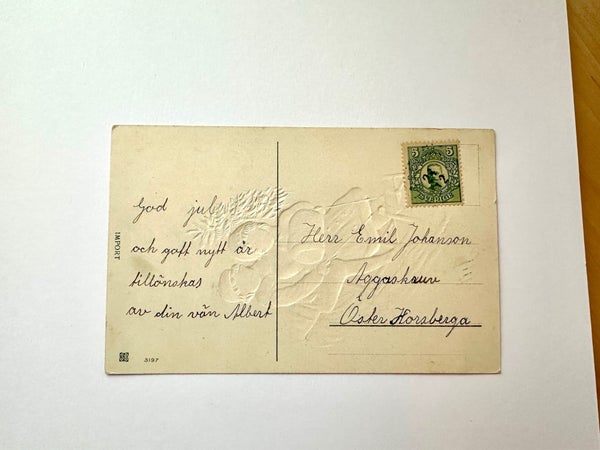 God jul
och gott nytt år
tillönskas
av din vän Albert
IMPORT
3197
5 5
SVERIGE
Herr Emil Johanson
Aggaskruv
Öster Korsberga